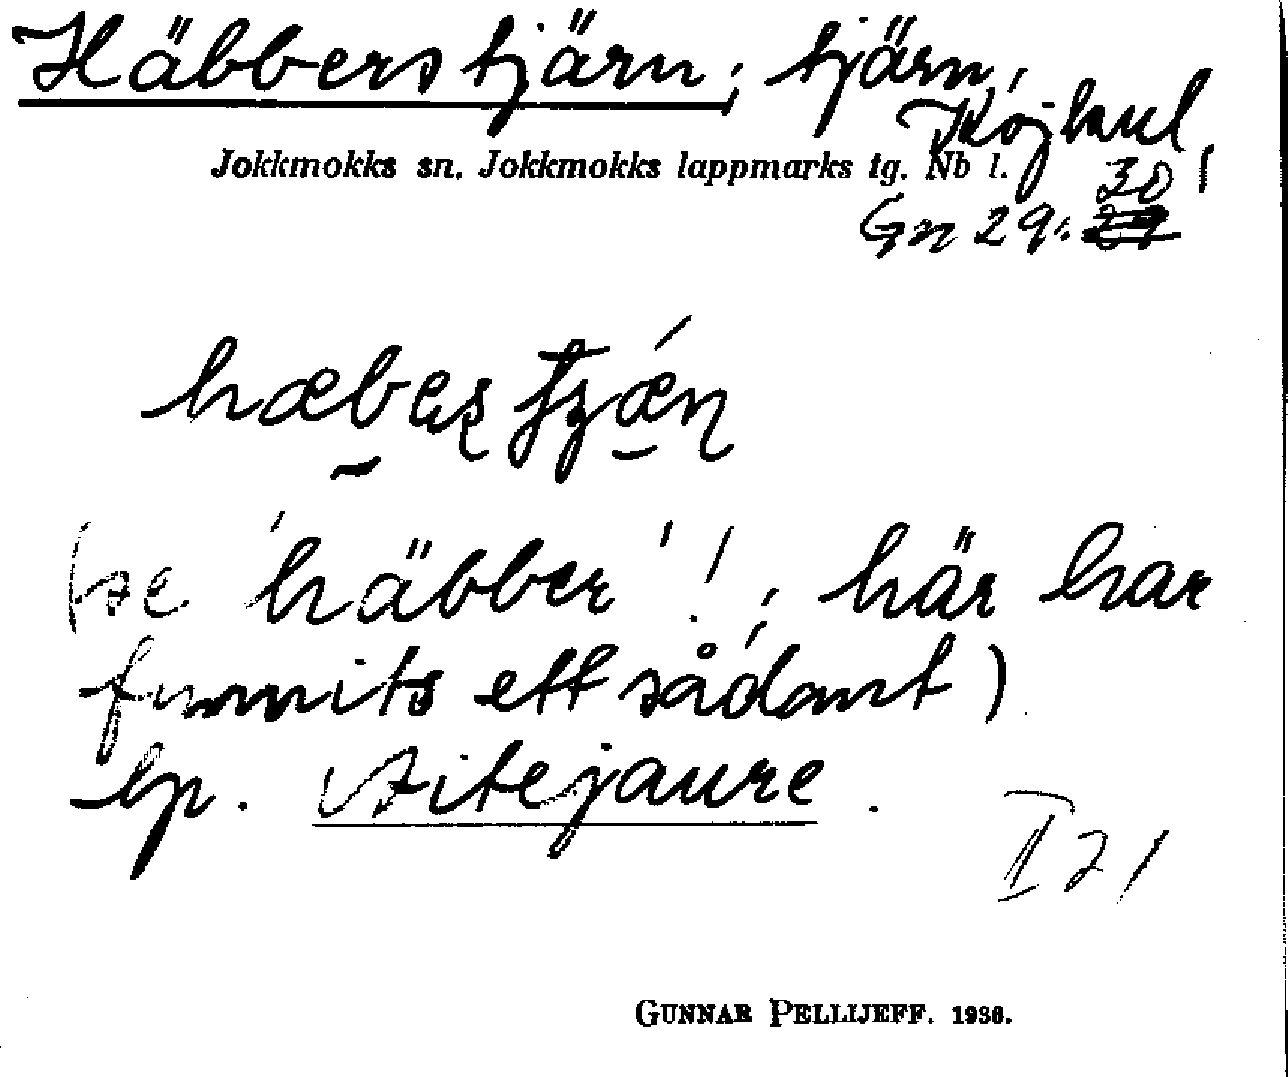 Häbberstjärn; tjärn,
Jokkmokks sn. Jokkmokks lappmarks tg. Nb l.
30
Gn 29: 29
(se 'häbber'!; här har
funnits ett sådant)
lp. Aitejaure.
I 21
GUNNAR PELLIJEFF. 1936.